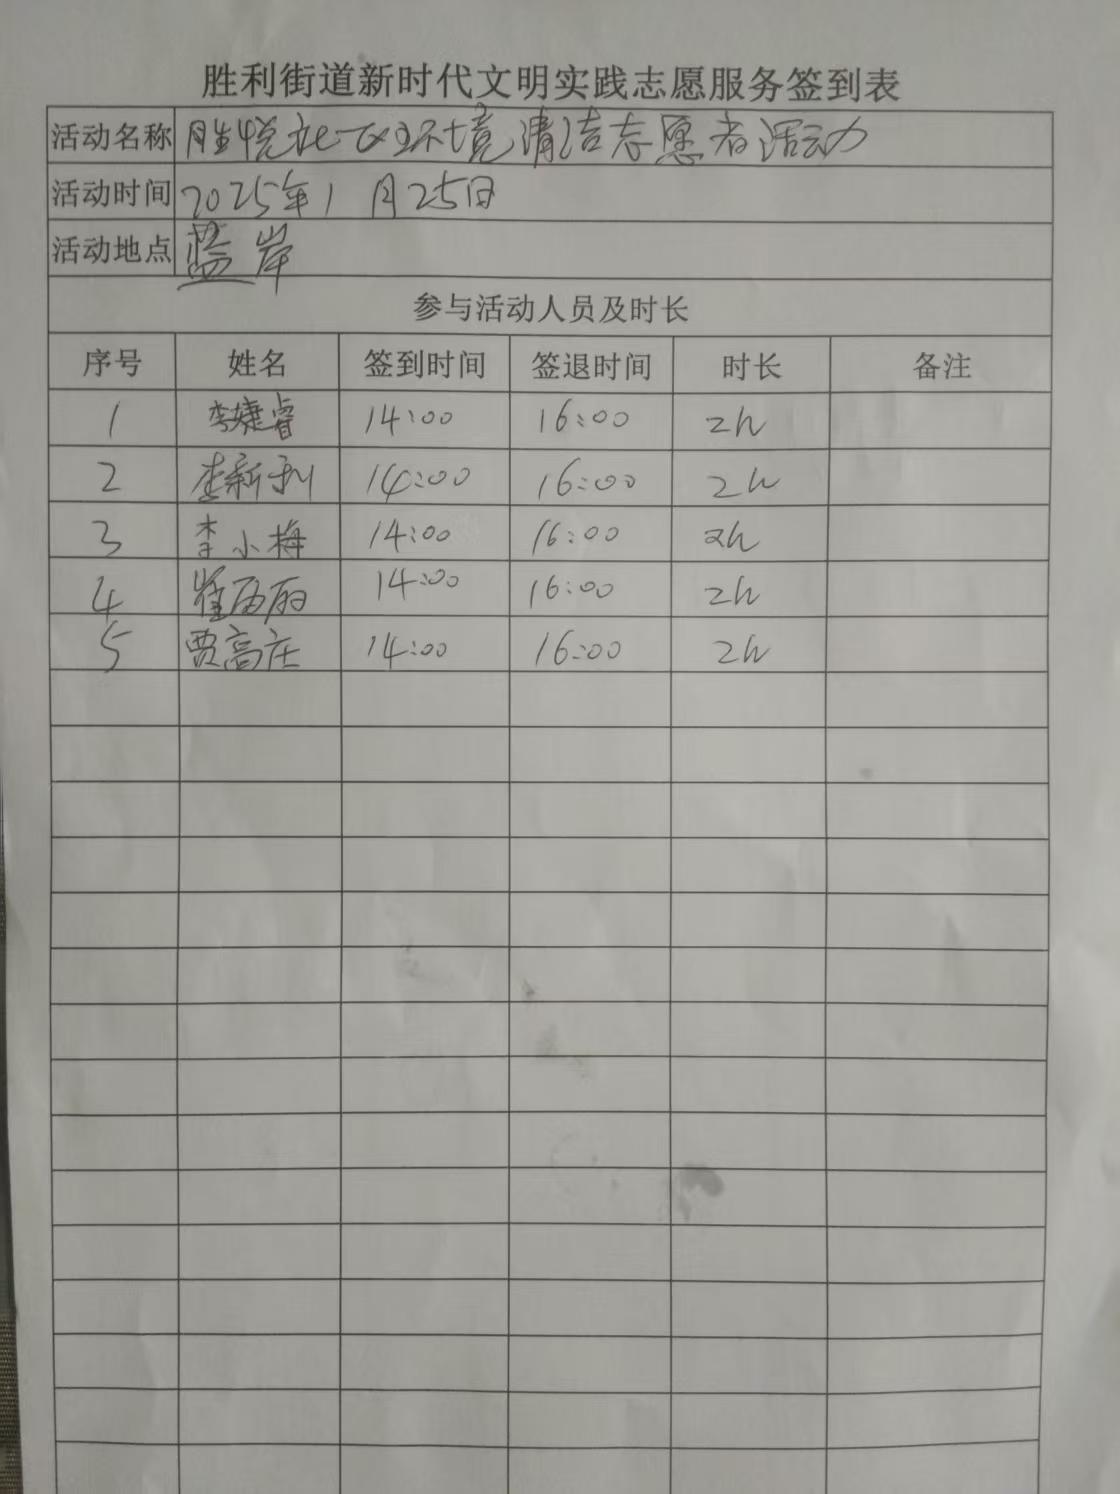 胜利街道新时代文明实践志愿服务签到表
活动名称 胜悦社区环境清洁志愿者活动
活动时间 2025年1月25日
活动地点 蓝岸
参与活动人员及时长
序号 姓名 签到时间 签退时间 时长 备注
1 李婕睿 14:00 16:00 2h
2 李新利 14:00 16:00 2h
3 李小梅 14:00 16:00 2h
4 崔丽丽 14:00 16:00 2h
5 贾高庄 14:00 16:00 2h